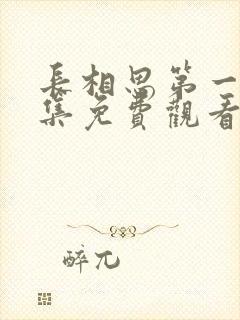 長相思第一
集免費觀看
醉兀